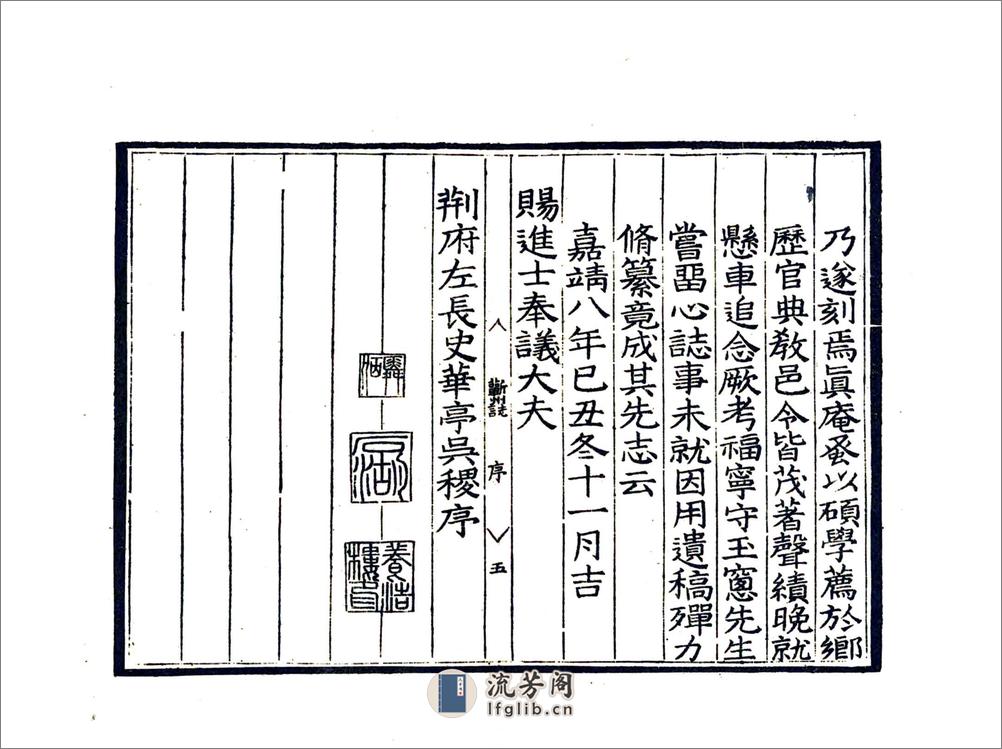 乃遂刻焉眞庵蚤以碩學薦於鄉
歷官典敎邑令皆茂著聲績晚就
懸車追念厥考福寧守玉窻先生
嘗畱心誌事未就因用遺稿殫力
脩纂竟成其先志云
嘉靖八年巳丑冬十一月吉
賜進士奉議大夫
荆府左長史華亭吳稷序
蘄州誌
序
五
養浩樓
流芳阁
lfglib.cn